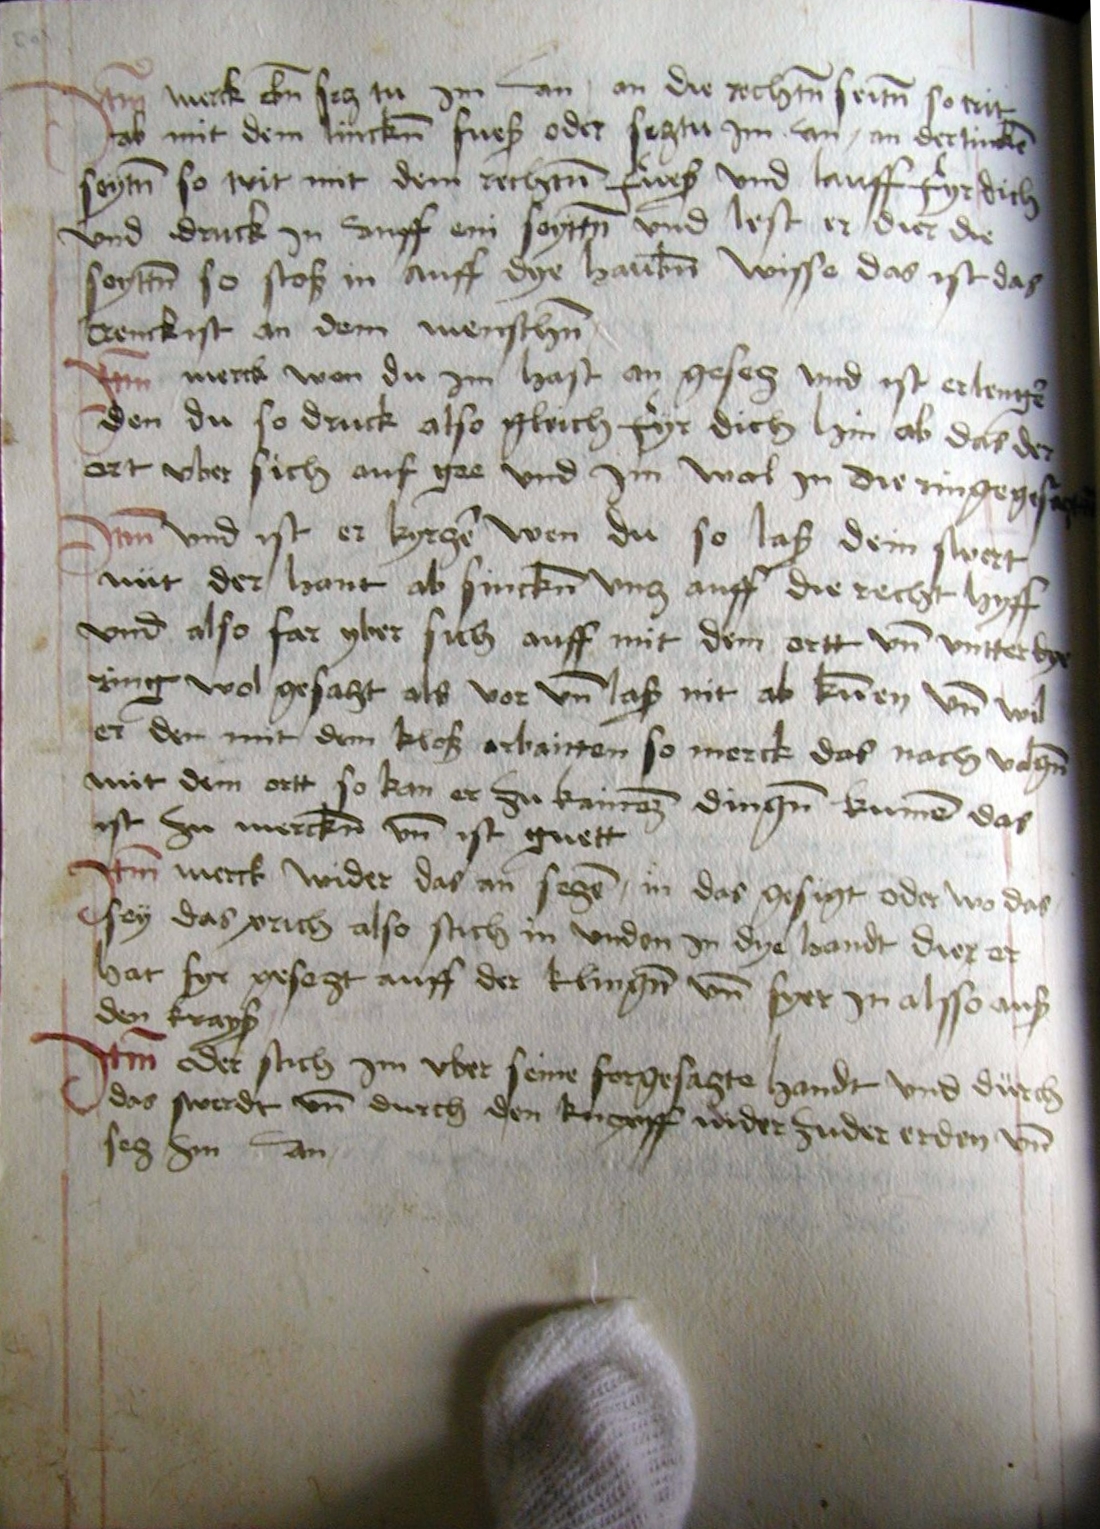 Itm merck ebn setz tu im an / an die rechtn seitn so trit
ab mit dem linckn fueß oder setztu im an / an der lincke
seytn so trit mit dem rechtn fueß vnd lauff fyr dich
vnd druck in auff ein seyttn vnd lest er dier die
seyttn so stoß in auff dye haubn wisse das ist das
krenckist an dem menschn
Itm merck wen du im hast an gesetz vnd ist er lenger
den du so druck also gleich fyr dich hin ab das der
ort vber sich auf gee vnd im wol in die ringe
Itm vnd ist er kyrtzer wen du so laß dein swert
mit der hant ab sinckn vntz auff die recht hyff
vnd also far yber sich auff mit dem ortt vn vntter dye
ring wol gesatzt als vor vn laß nit ab kumen vn wil
er den mit dem kloß arbaitten so merck das nach volgn
mit dem ortt so kan er zu kainen dingn kumen das
ist zu merckn vn ist guett
Itm merck wider das an setzen / in das gesigt oder wo das
sey das prich also stich in vnden in dye handt dier er
hat fyr gesetzt auff der klingn vn fyer in alsso auß
den krayß
Itm oder stich im vber seine forgesatzte handt vnd dürch
das swerdt vn durch den knopff nider zu der erden vn
setz im an